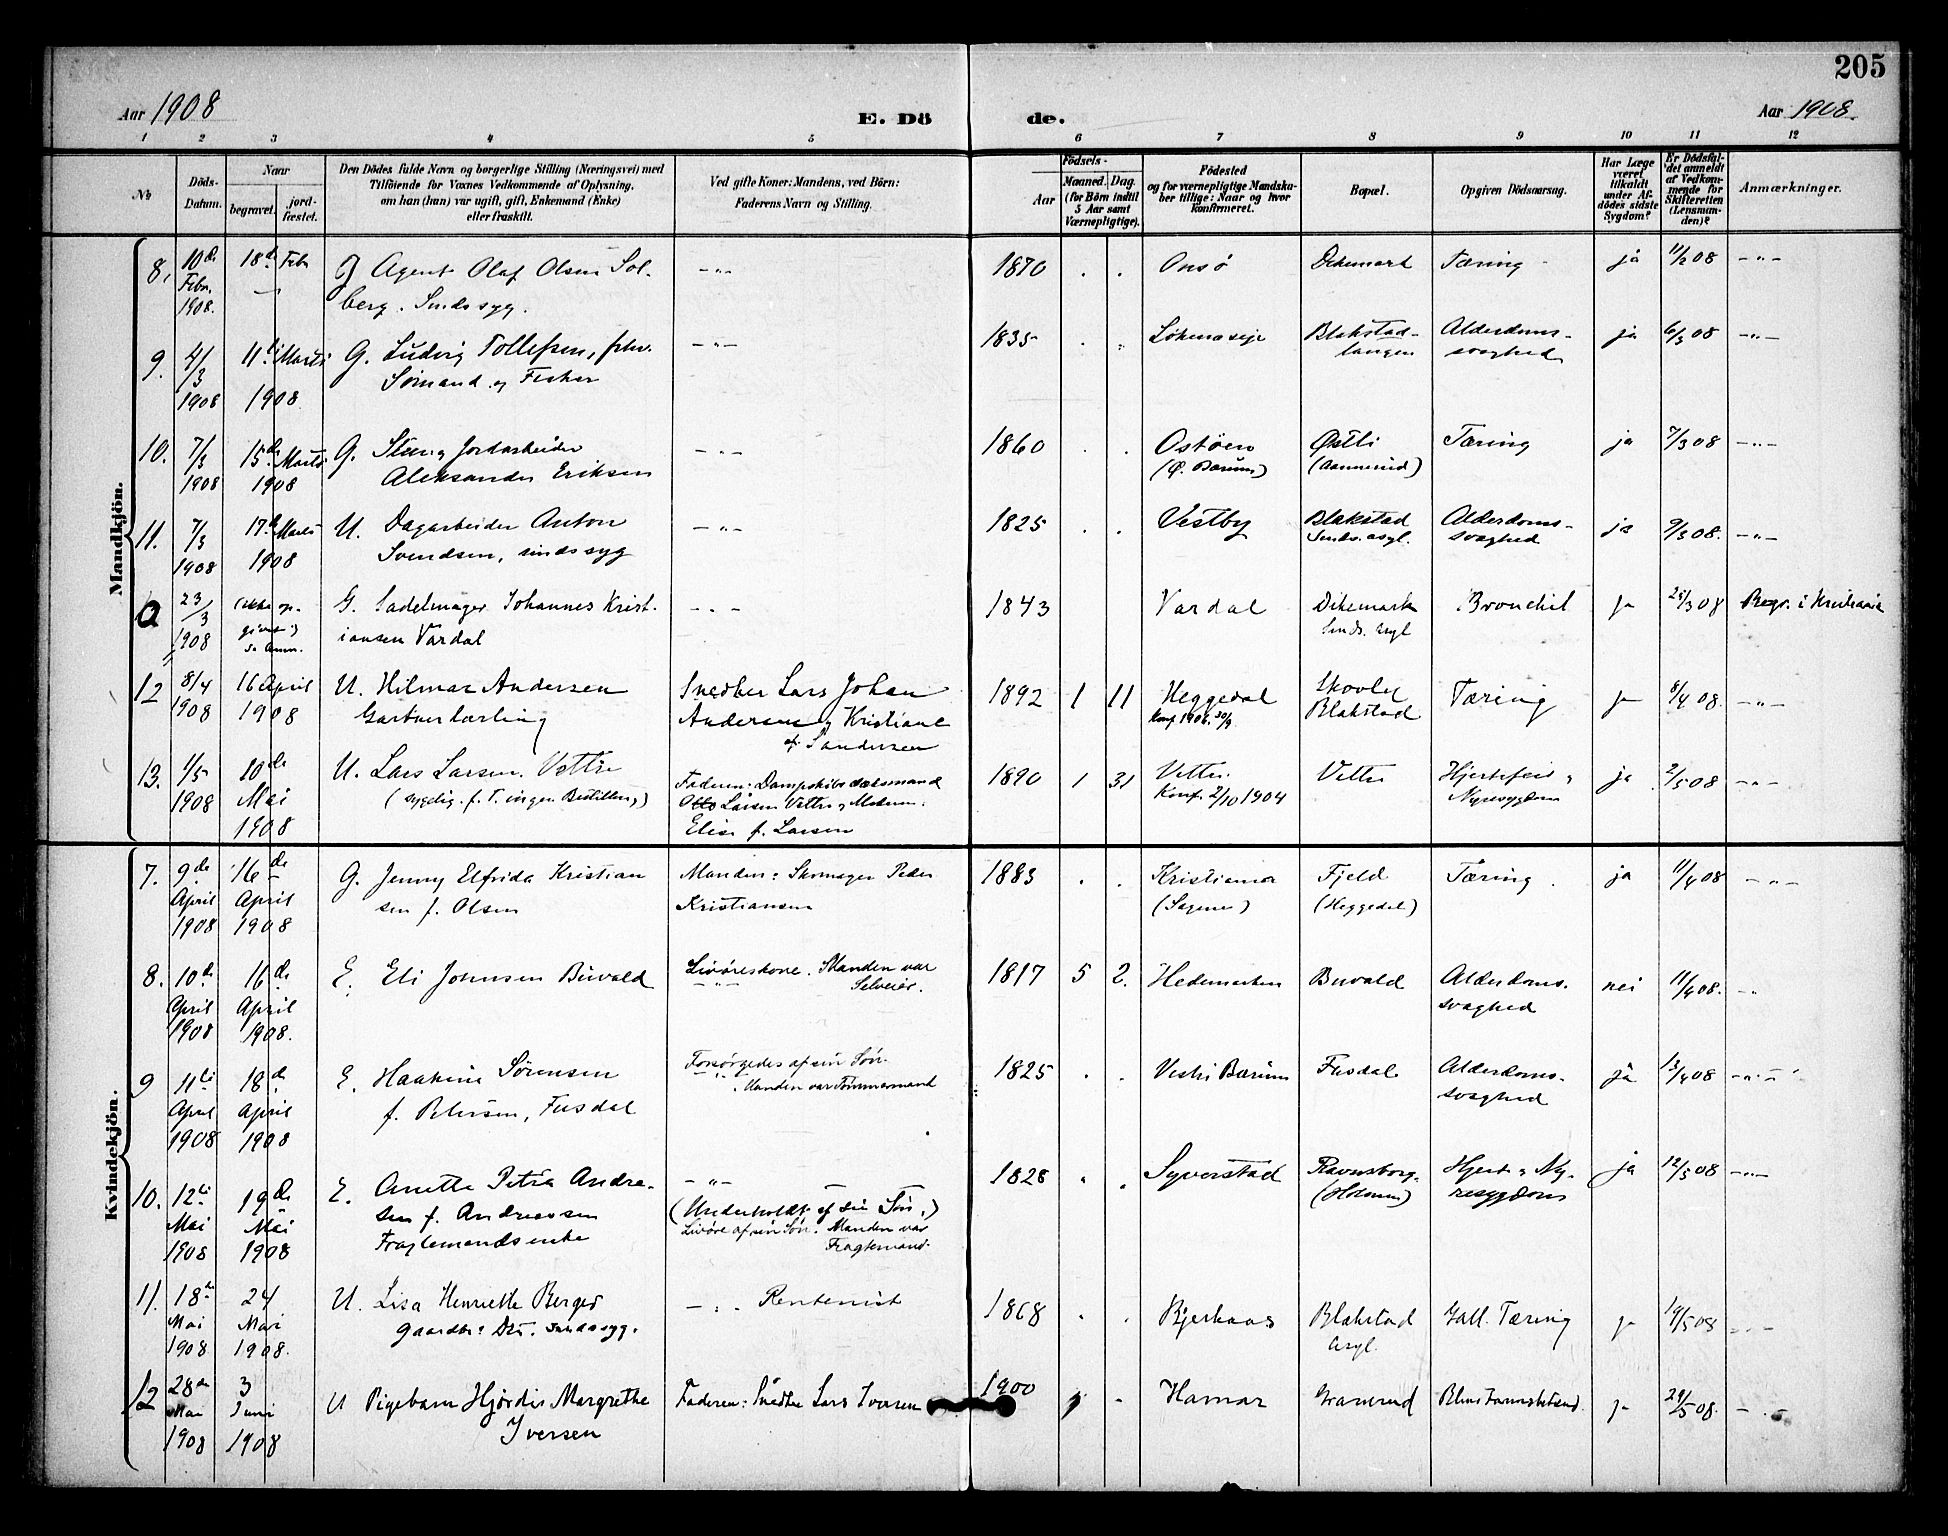 205
Aar 1908
E. Dö
de.
Aar 1908.
1 2 3 4 5 6 7 8 9 10 11 12
No
Döds-
Datum.
Naar
begravet.
jord-
fæstet.
Den Dödes fulde Navn og borgerlige Stilling (Næringsvei) med
Tilföiende for Voxnes Vedkommende af Oplysning,
om han (hun) var ugift, gift, Enkemand (Enke)
eller fraskilt.
Ved gifte Koner: Mandens, ved Börn:
Faderens Navn og Stilling.
Födsels-
Aar
Maaned. Dag.
(for Börn indtil
5 Aar samt
Værnepligtige).
Födested
og for værnepligtige Mandska-
ber tillige: Naar og hvor
konfirmeret.
Bopæl.
Opgiven Dödsaarsag.
Har Læge
været
tilkaldt
under Af-
dödes sidste
Sygdom?
Er Dödsfal-
det anmeldt
af Vedkom-
mende for
Skifteretten
(Lensman-
den)?
Anmærkninger.
Mandkjön.
8. 10de Febr. 1908. 18de Febr G Agent Olaf Olsen Sol-
berg. Sindssyg. -"- 1870 . . Onsö Dikemark Tæring ja 11/2 08 -"-
9. 4/3 1908 11te Marts 1908 G. Ludvig Tollefsen, fhv.
Sømand og Fisker -"- 1835 . . Blakstad-
tangen Alderdoms-
svaghed ja 6/3 08 -"-
10. 7/3 1908 15de Marts 1908 G. Jordarbeider
Aleksander Eriksen -"- 1860 . . Ostöen
(Ø. Bærum) Østli
Tæring ja 7/3 08 -"-
11. 7/3 1908 17de Marts 1908 U. Dagarbeider Anton
Svendsen, sindssyg -"- 1825 . . Vestby Blakstad
Sinds.asyl. Alderdoms-
svaghed ja 9/3 08. -"-
a 23/3 1908 (ikke op-
givet)
se Anm. G. Sadelmager Johannes Krist-
iansen Vardal -"- 1843 Vardal Dikemark
Sinds. asyl Bronchit ja 25/3 08 Begr. i Kristiania
12 8/4 1908 16 April 1908 U. Hilmar Andersen
Gartnerlærling Snedker Lars Johan
Andersen og Kristiane
f. Sandersen 1892 1 11 Heggedal
Konf. 1906. 30/9 Skovly
Blakstad Tæring ja 8/4 08. -"-
13. 1/5 1908 10de Mai 1908 U. Lars Larsen Vettre
(sygelig. f. T. ingen Bestilling) Faderen: Dampskibsdæksmand
Otto Larsen Vettre og Moderen:
Elise f. Larsen 1890 1 31 Vettre.
Konf. 2/10 1904 Vettre Hjertefeil og
Nyresygdom ja 2/5 08 -"-
Kvindekjön.
7. 9de April 1908 16de April 1908 G. Jenny Elfrida Kristian
sen f. Olsen Manden: Skomager Peder
Kristiansen 1883 . . Kristiania
(Sagene) Fjeld
(Heggedal) Tæring. ja 11/4 08 -"-
8. 10de April 1908 16de April 1908. E. Eli Johnsen Buvald Livöreskone. Manden var
Selveier. 1817 5 2. Hedemarken Buvald Alderdoms-
svaghed nei 11/4 08. -"-
9 11te April 1908 18de April 1908 E. Haakine Sörensen
f. Petersen, Fusdal Forsörgedes af sin Sön.
Manden var Tömmermand 1825 . . Vestre Bærum Fusdal Alderdoms-
svaghed ja 13/4 08 -"-
10. 12te Mai 1908 19de Mai 1908 E. Anette Petra Andre-
sen f. Andreassen
Fragtemandsenke -"-
(Underholdt af sin Sön.)
Livöre af sin Sön. Manden var
Fragtemand. 1828 . . Syverstad Ravnsborg
(Holmen) Hjerte og Ny-
resygdom ja 12/5 08 -"-
11. 18de Mai 1908 24 Mai 1908. U. Lisa Henriette Berger
Gaardbr. Dtr. sindssyg. -"- Rentenist 1868 . . Bjerkaas Blakstad
Asyl. Gall. Tæring ja 19/5 08 -"-
12 28de Mai 1908 3 Juni 1908 U Pigebarn Hjördis Margrethe
Iversen Faderen: Snedker Lars Iversen 1900 Hamar ja 29/5 08. -"-